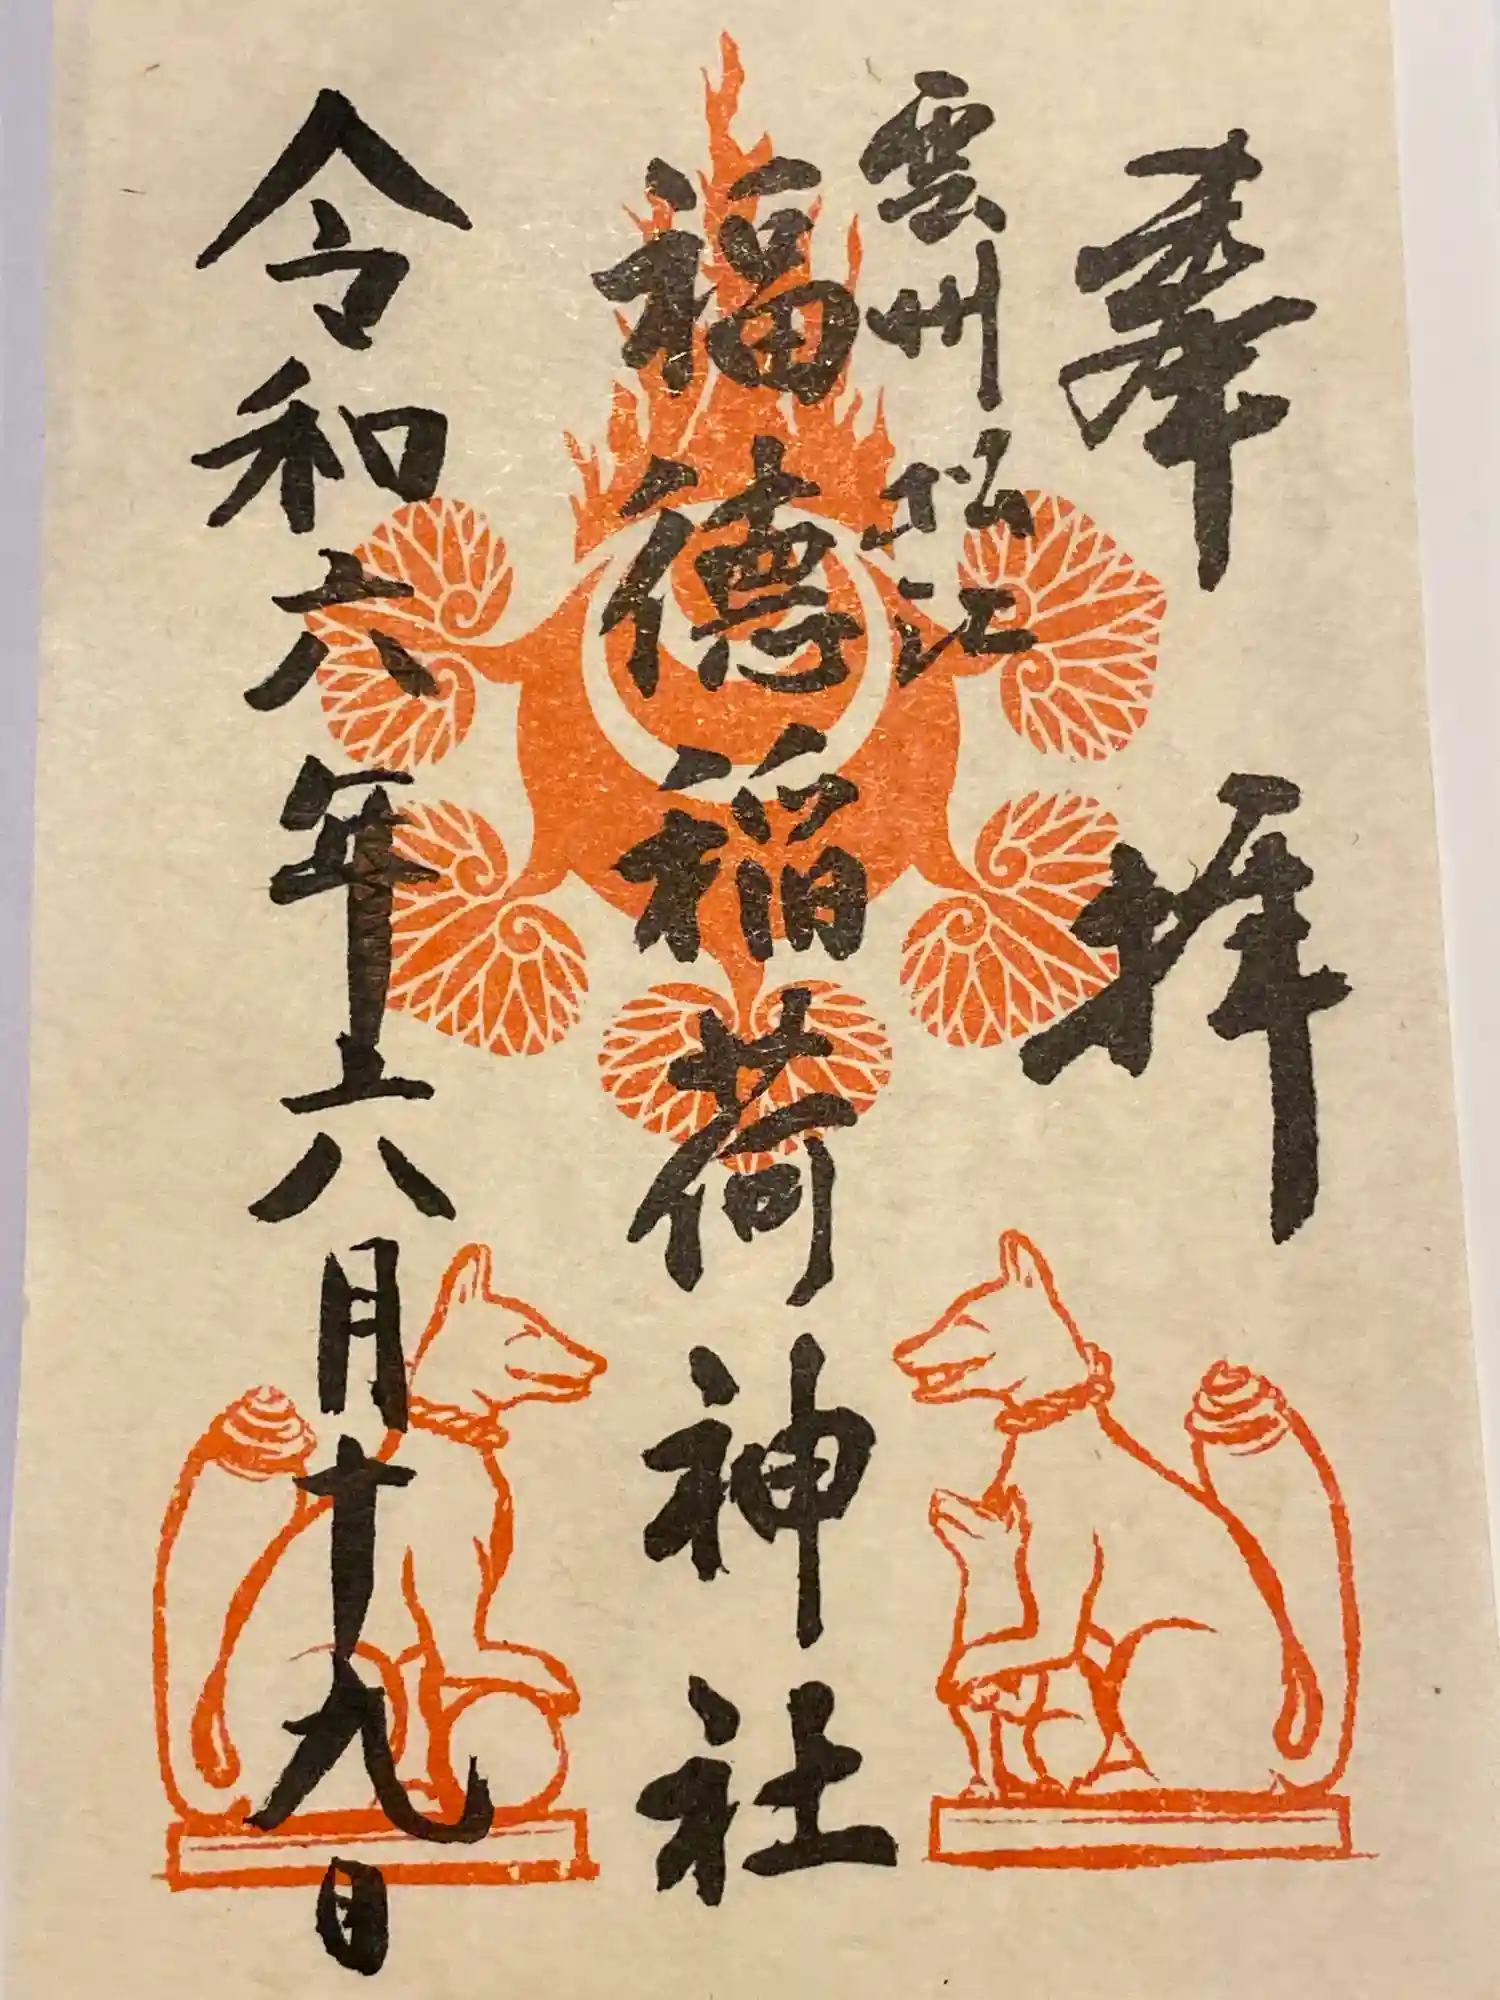 奉拝
雲州松江
福徳稲荷神社
令和六年六月十九日